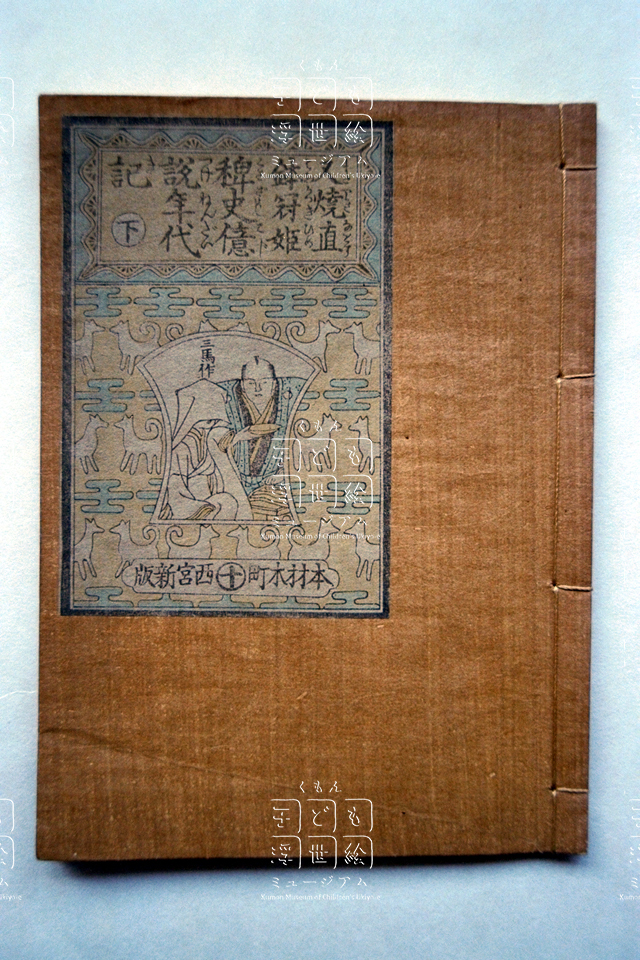 くもん
子ども
浮世絵
ミュージアム
Kumon Museum of Children's Ukiyo-e
焼直
鉢冠姫
稗史億
説年代
記
下
三馬作
くもん
子ども
浮世絵
ミュージアム
Kumon Museum of Children's Ukiyo-e
本材木町 十 西宮新版
くもん
子ども
浮世絵
ミュージアム
Kumon Museum of Children's Ukiyo-e